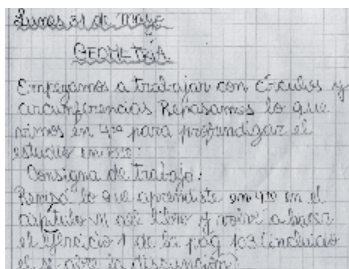 Lunes 31 de Mayo
GEOMETRÍA
Empezamos a trabajar con círculos y
circunferencias Repasamos lo que
vimos en 4to para profundizar el
estudio en 5to:
Consigna de trabajo:
Repasá lo que aprendiste en 4to en el
capítulo del libro y volvé a hacer
el ejercicio 1 de la pág 103 (incluido
el se abre la discusión)